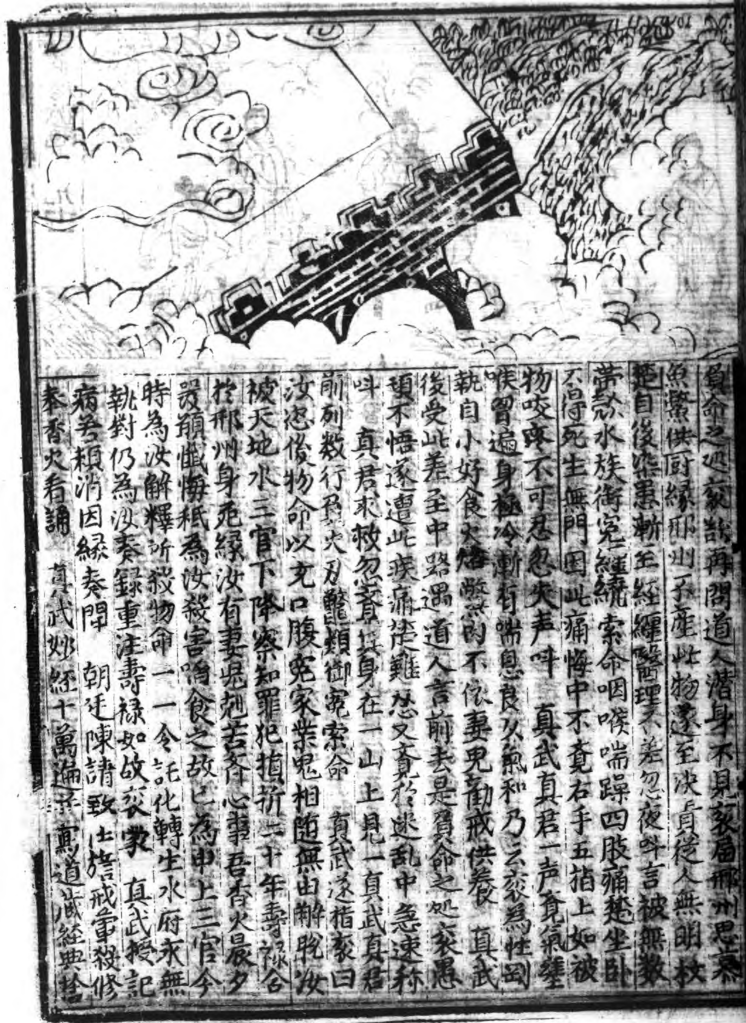 負命之処衮哉再問道人潜身不見衮届邢州思慕
魚鱉供厨縁邢州不産此物遂至決責従人無明杖
楚自後染患漸至經纏醫理不差忽夜呌言被無數
帶水族衘寃經繞索命咽喉喘躁四股痛楚坐卧
不得死生無門因此痛悔中不覔右手五指上如被
物咬齊不可忍忽失声呌 真武真君一声覔氣壅
喉胃遍身極冷漸有喘息良久氣和乃云衮為性剛
執自小好食火鱉的不依妻児勸戒供養 真武
後受此差至中路遇道人言前去是負命之処衮愚
頑不悟遂遭此疾痛楚難忍又覔於迷乱中急速称
呌 真君求救忽衮身在一山上見一真武真君
前列数行火刃鱉類衘寃索命 真武遂指衮曰
汝恣傷物命以充口腹寃家業鬼相随無由觧脱汝
被天地水三官下降察知罪犯揁折二十年壽禄合
於邢州身死縁汝有妻児剋苦斉心事吾香火晨夕
爇願懺悔秪為汝殺害噉食之故已為申上三官今
時為汝解釋所殺物命一一令託化轉生水府永無
執對仍為汝奏録重注壽禄如故衮蒙 真武授記
病苦頼消因縁奏聞 朝廷陳請致仕持戒葷殺修
奉香火看誦 真武妙經十萬遍并寫道蔵經典捨